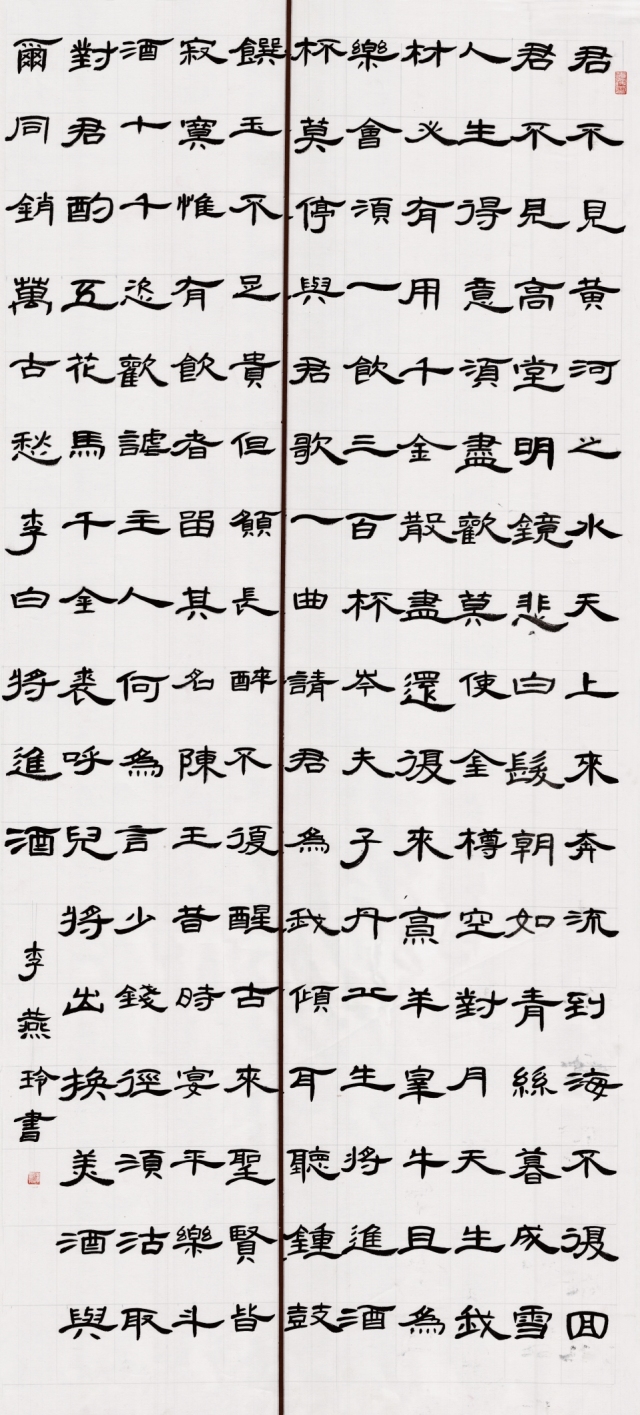 君不見黃河之水天上來奔流到海不復回
君不見高堂明鏡悲白髮朝如青絲暮成雪
人生得意須盡歡莫使金樽空對月天生我
材必有用千金散盡還復來烹羊宰牛且為
樂會須一飲三百杯岑夫子丹丘生將進酒
杯莫停與君歌一曲請君為我傾耳聽鍾鼓
饌玉不足貴但願長醉不復醒古來聖賢皆
寂寞惟有飲者留其名陳王昔時宴平樂斗
酒十千恣歡謔主人何為言少錢徑須沽取
對君酌五花馬千金裘呼兒將出換美酒與
爾同銷萬古愁李白將進酒
李燕玲書